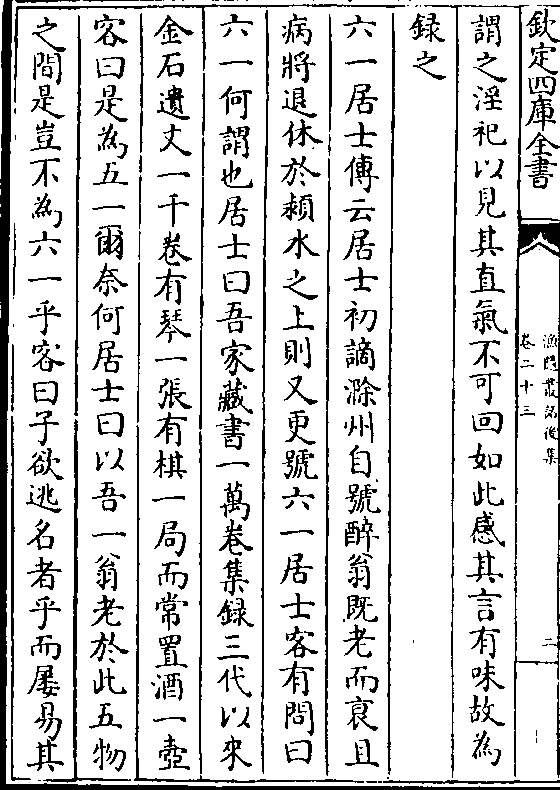 欽定四庫全書
漁隱叢話後集
卷二十三
二
謂之淫祀以見其直氣不可回如此感其言有味故為
録之
六一居士傳云居士初謫滁州自號醉翁既老而衰且
病將退休於潁水之上則又更號六一居士客有問曰
六一何謂也居士曰吾家藏書一萬卷集録三代以來
金石遺文一千卷有琴一張有棋一局而常置酒一壺
客曰是為五一爾奈何居士曰以吾一翁老於此五物
之間是豈不為六一乎客曰子欲逃名者乎而屢易其